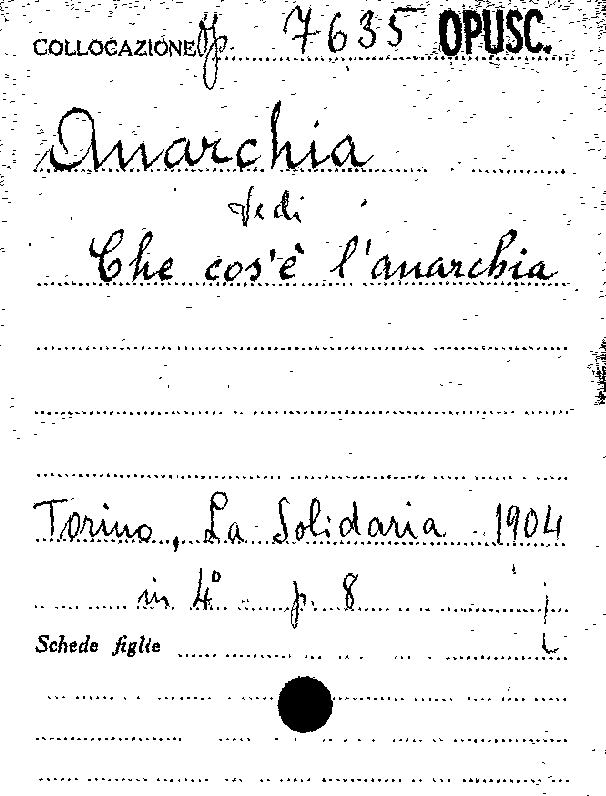 COLLOCAZIONE Op. 7635 OPUSC.
Anarchia
Vedi
Che cos'è l'anarchia
Torino, La Solidaria 1904
in 4° p. 8
Schede figlie